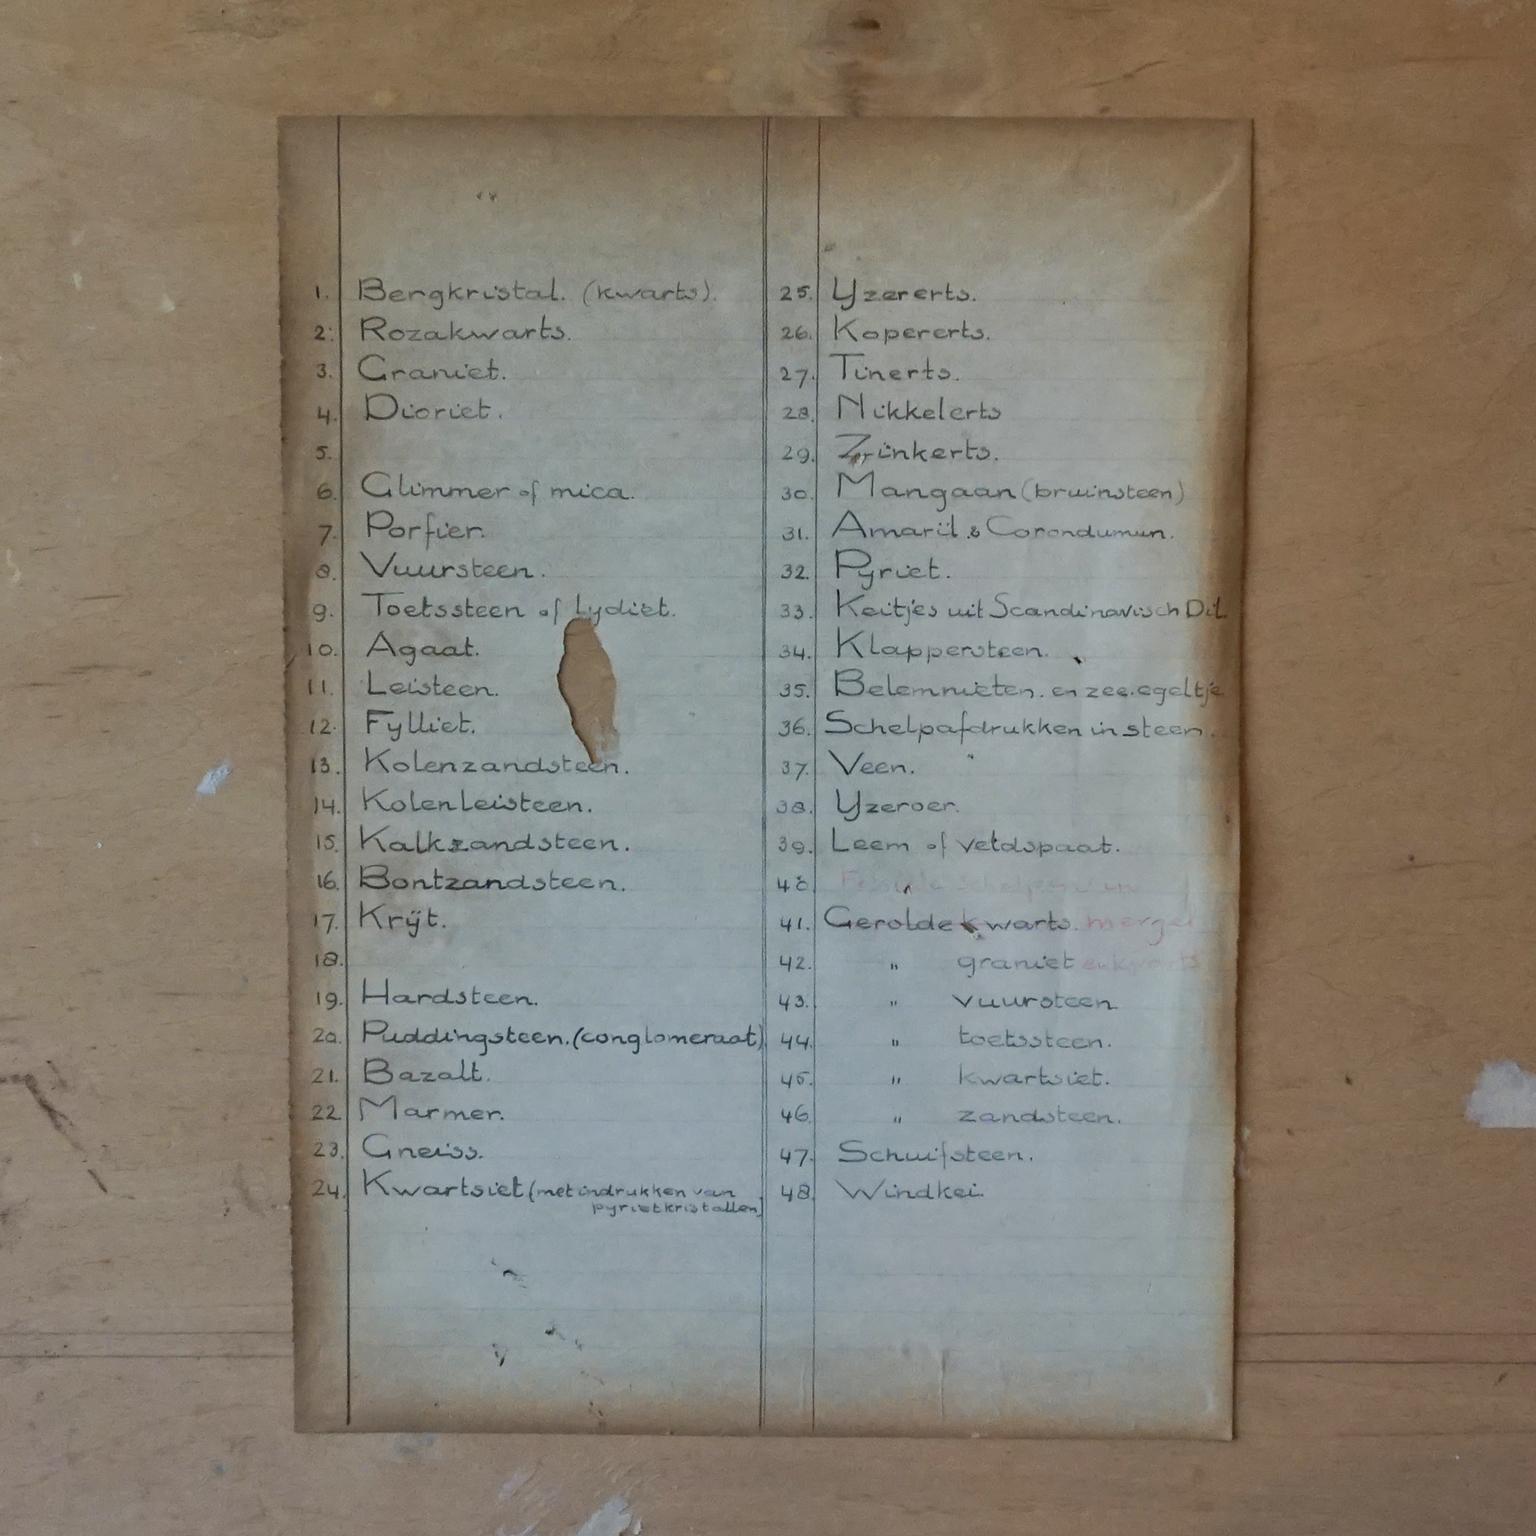 1. Bergkristal. (kwarts).
2. Rozakwarts.
3. Graniet.
4. Dioriet.
5.
6. Glimmer of mica.
7. Porfier.
8. Vuursteen.
9. Toetssteen of Lydiet.
10. Agaat.
11. Leisteen.
12. Fylliet.
13. Kolenzandsteen.
14. Kolenleisteen.
15. Kalkzandsteen.
16. Bontzandsteen.
17. Krijt.
18.
19. Hardsteen.
20. Puddingsteen. (conglomeraat)
21. Bazalt.
22. Marmer.
23. Gneiss.
24. Kwartsiet (met indrukken van
pyrietkristallen)
25. Yzererts.
26. Kopererts.
27. Tinerts.
28. Nikkelerts
29. Zinkerts.
30. Mangaan (bruinsteen)
31. Amaril & Corondumun.
32. Pyriet.
33. Keitjes uit Scandinavisch Dil.
34. Klappersteen.
35. Belemnieten. en zee-egeltje
36. Schelpafdrukken in steen.
37. Veen.
38. Yzeroer.
39. Leem of veldspaat.
40.
41. Gerolde kwarts. mergel
42. " graniet en kwarts
43. " vuursteen
44. " toetssteen.
45. " kwartsiet.
46. " zandsteen.
47. Schuifsteen.
48. Windkei.